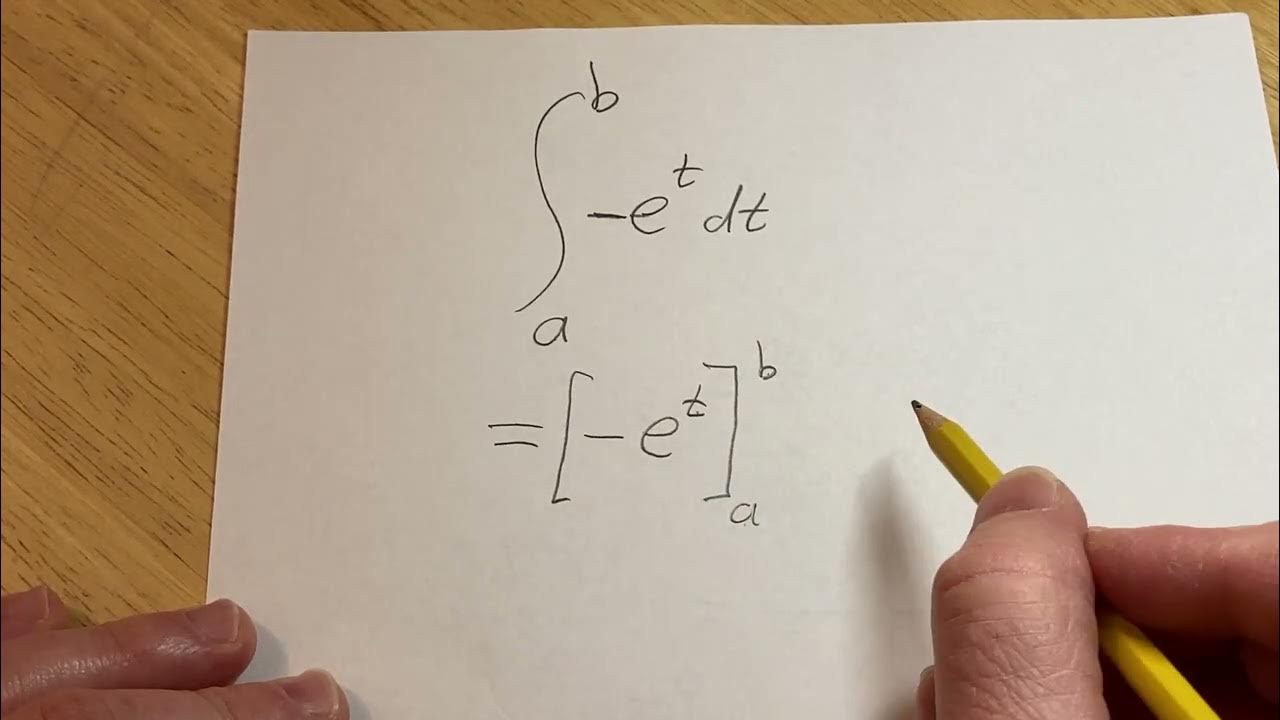 ∫_a^b -e^t dt
= [-e^t]_a^b